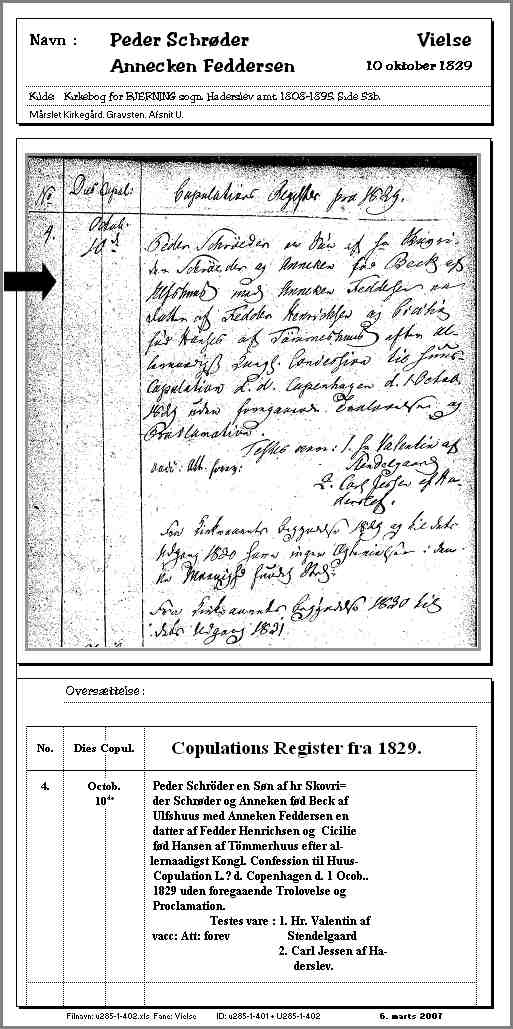 Navn : Peder Schrøder Vielse
Annecken Feddersen 10 oktober 1829
Kilde: Kirkebog for BJERNING sogn. Haderslev amt. 1808-1895. Side 53b.
Mårslet Kirkegård. Gravsten. Afsnit U.
No Dies Copul. Copulations Register pro 1829.
4. Octob.
10d
Peder Schröder en Søn af Hr Skovri-
der Schröder og Anneken fød Beck af
Ulfshuus med Anneken Feddersen en
datter af Fedder Henrichsen og Cicilia
fød Hansen af Tömmerhuus efter al-
lernaadigst Kongl. Concession til Huus-
Copulation d. d. Copenhagen d. 1 Octob.
1829 uden foregaaende Trolovelse og
Proclamation
Testes vare: 1. Hr Valentin af
vacc: Att. forev: Stendelgaard
2. Carl Jessen af Ha-
derslef.
Fra Kirkeaarets Begyndelse 1829 og til dets
Udgang 1830 have ingen Ægtevielser i den-
ne Menighed fundet Sted.
Fra Kirkeaarets Begyndelse 1830 til
dets Udgang 1831
Oversættelse:
No. Dies Copul. Copulations Register fra 1829.
4. Octob. Peder Schröder en Søn af hr Skovri=
10de der Schrøder og Anneken fød Beck af
Ulfshuus med Anneken Feddersen en
datter af Fedder Henrichsen og Cicilie
fød Hansen af Tömmerhuus efter al-
lernaadigst Kongl. Confession til Huus-
Copulation L.? d. Copenhagen d. 1 Ocob..
1829 uden foregaaende Trolovelse og
Proclamation.
Testes vare : 1. Hr. Valentin af
vacc: Att: forev Stendelgaard
2. Carl Jessen af Ha-
derslev.
Filnavn: u285-1-402.xls Fane: Vielse ID: u285-1-401+ U285-1-402 6. marts 2007